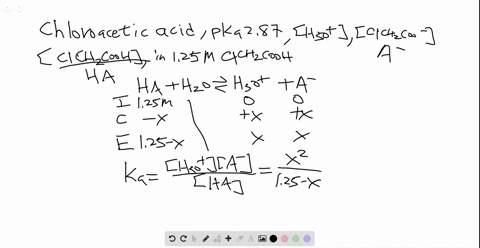 Chloroacetic acid, pKa 2.87, [H3O+], [ClCH2COO-]
[ClCH2COOH], in 1.25 M ClCH2COOH A-
HA
HA + H2O ⇌ H3O+ + A-
I 1.25M 0 0
C -x +x +x
E 1.25-x x x
Ka = [H3O+][A-] / [HA] = x² / 1.25-x
A